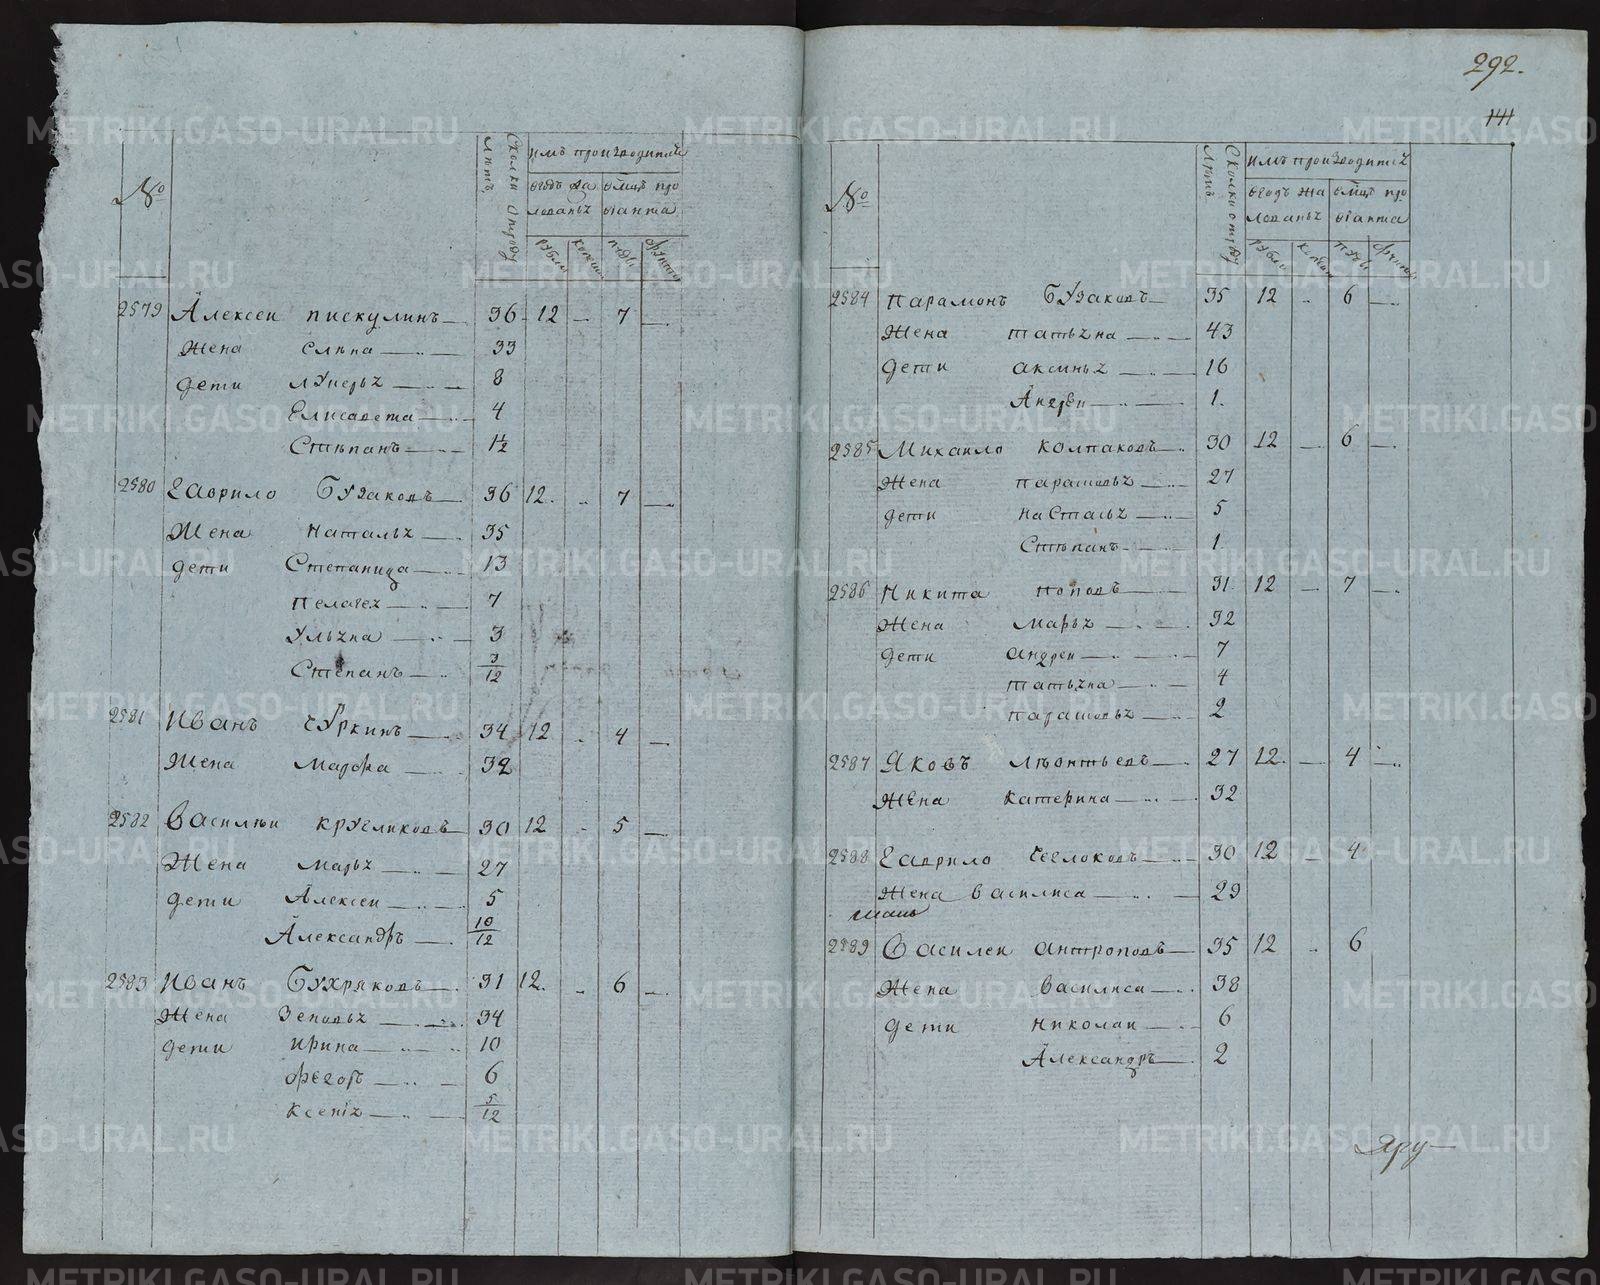 292.
141
№
Сколки отроду
Лѣтъ
имъ производитца
вгодъ жалованьѣ
вмцъ провіанта
рубли
копеики
пуды
фунты
2579 Алексеи пискулинъ 36 12 7
Жена Слѣпа 33
дети лукерья 8
Елисавета 4
Стѣпанъ 1½
2580 Гаврило Бузаковъ 36 12. 7
Жена Наталья 35
дети Степанида 13
пелагея 7
Ульяна 3
Стѣпанъ 3/12
2581 Иванъ Чуркинъ 34 12 4
Жена Марфа 32
2582 Василѣи кругликовъ 30 12 5
Жена марья 27
дети Алексеи 5
Александръ 10/12
2583 Иванъ Бухряковъ 31 12. 6
Жена Зеновья 34
дети ирина 10
федоръ 6
ксенія 5/12
№
Лѣтъ
Сколки отроду
имъ производитца
вгодъ жалованьѣ
вмцъ провіанта
рубли
копеики
пуды
фунты
2584 парамонъ Бузаковъ 35 12 6
Жена татьяна 43
дети аксинья 16
Андреи 1.
2585 Михаило колпаковъ 30 12 6
Жена парасковья 27
дети настасья 5
Стѣпанъ 1
2586 Никита поповъ 31. 12 7
Жена марья 32
дети андреи 7
татьяна 4
парасковья 2
2587 Яковъ лѣонтьевъ 27 12. 4
Жена катерина 32
2588 Гаврило щелоковъ 30 12 4
Жена василиса 29
2589 Василеи антроповъ 35 12 6
Жена василиса 38
дети николаи 6
Александръ 2
METRIKI.GASO-URAL.RU